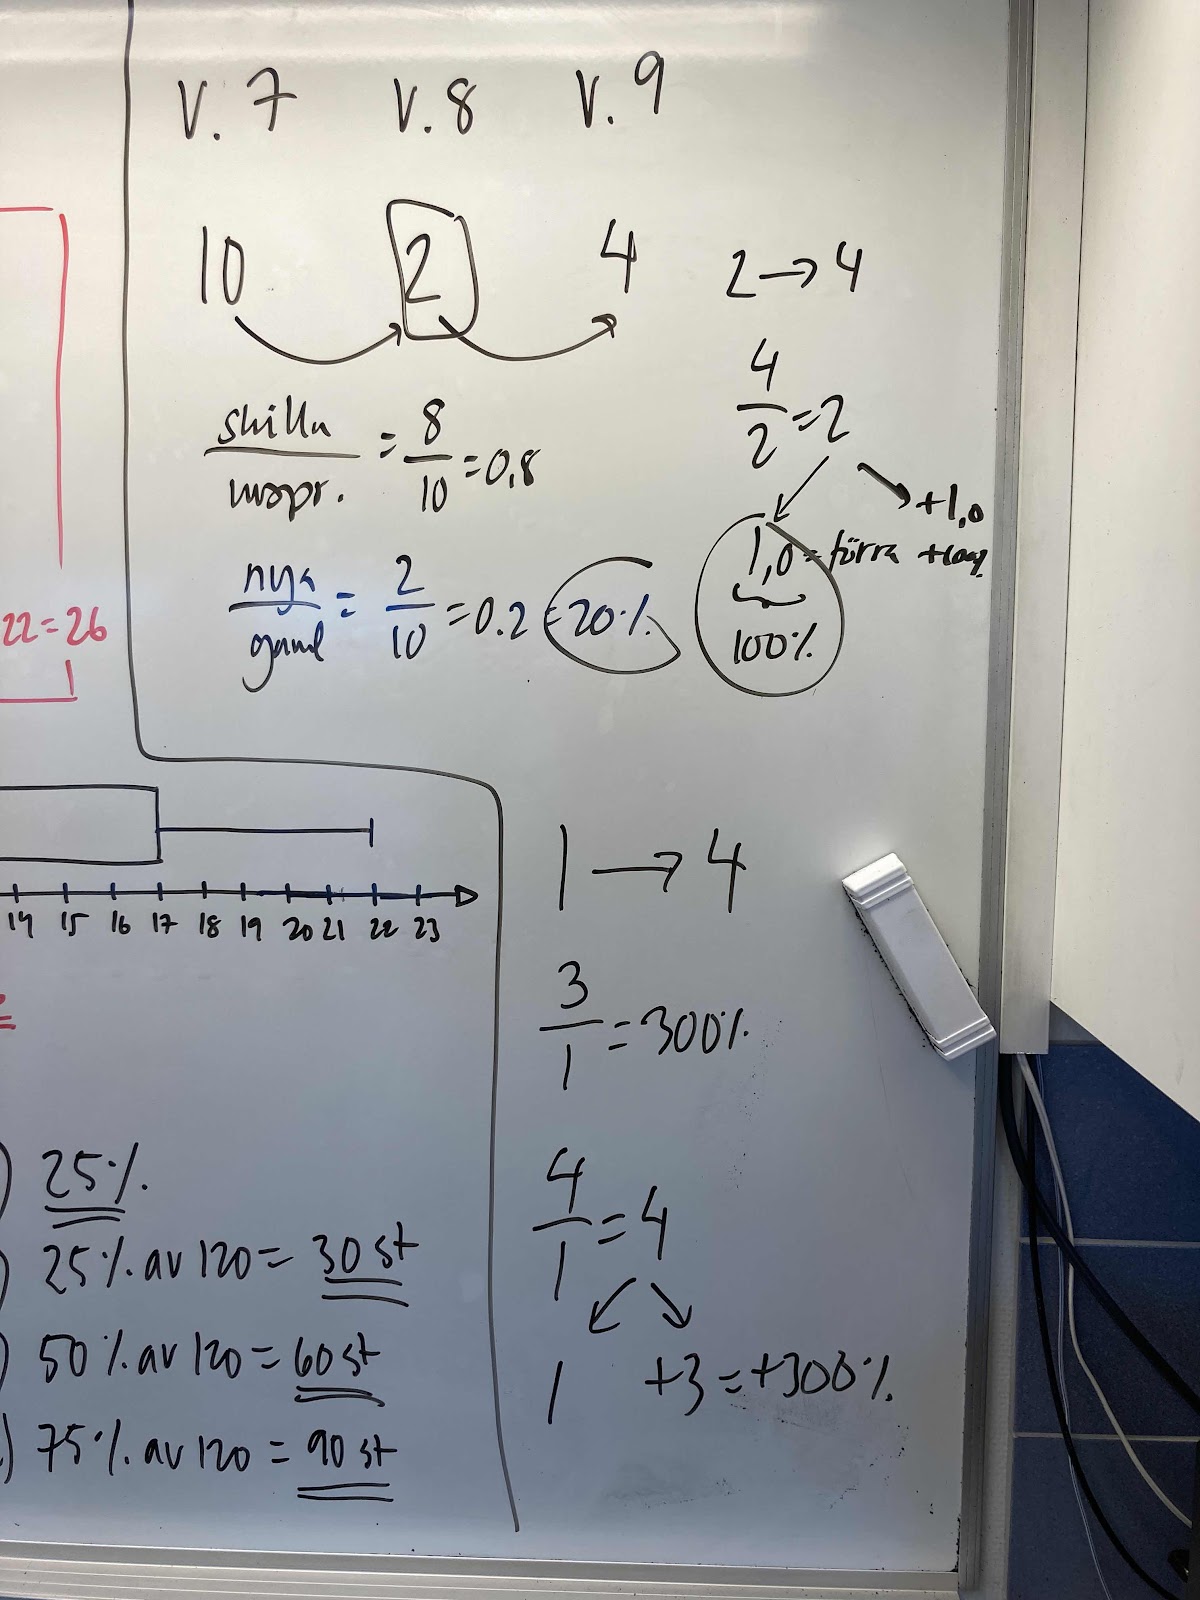 v. 7 v. 8 v. 9
10 2 4
2 → 4
skilln / urspr. = 8/10 = 0,8
4/2 = 2
+1,0
1,0 = förra
100%
nya / gaml = 2/10 = 0.2 = 20%
22 = 26
14 15 16 17 18 19 20 21 22 23
1 → 4
3/1 = 300%
4/1 = 4
1 +3 = +300%
) 25%
) 25% av 120 = 30 st
) 50% av 120 = 60 st
) 75% av 120 = 90 st